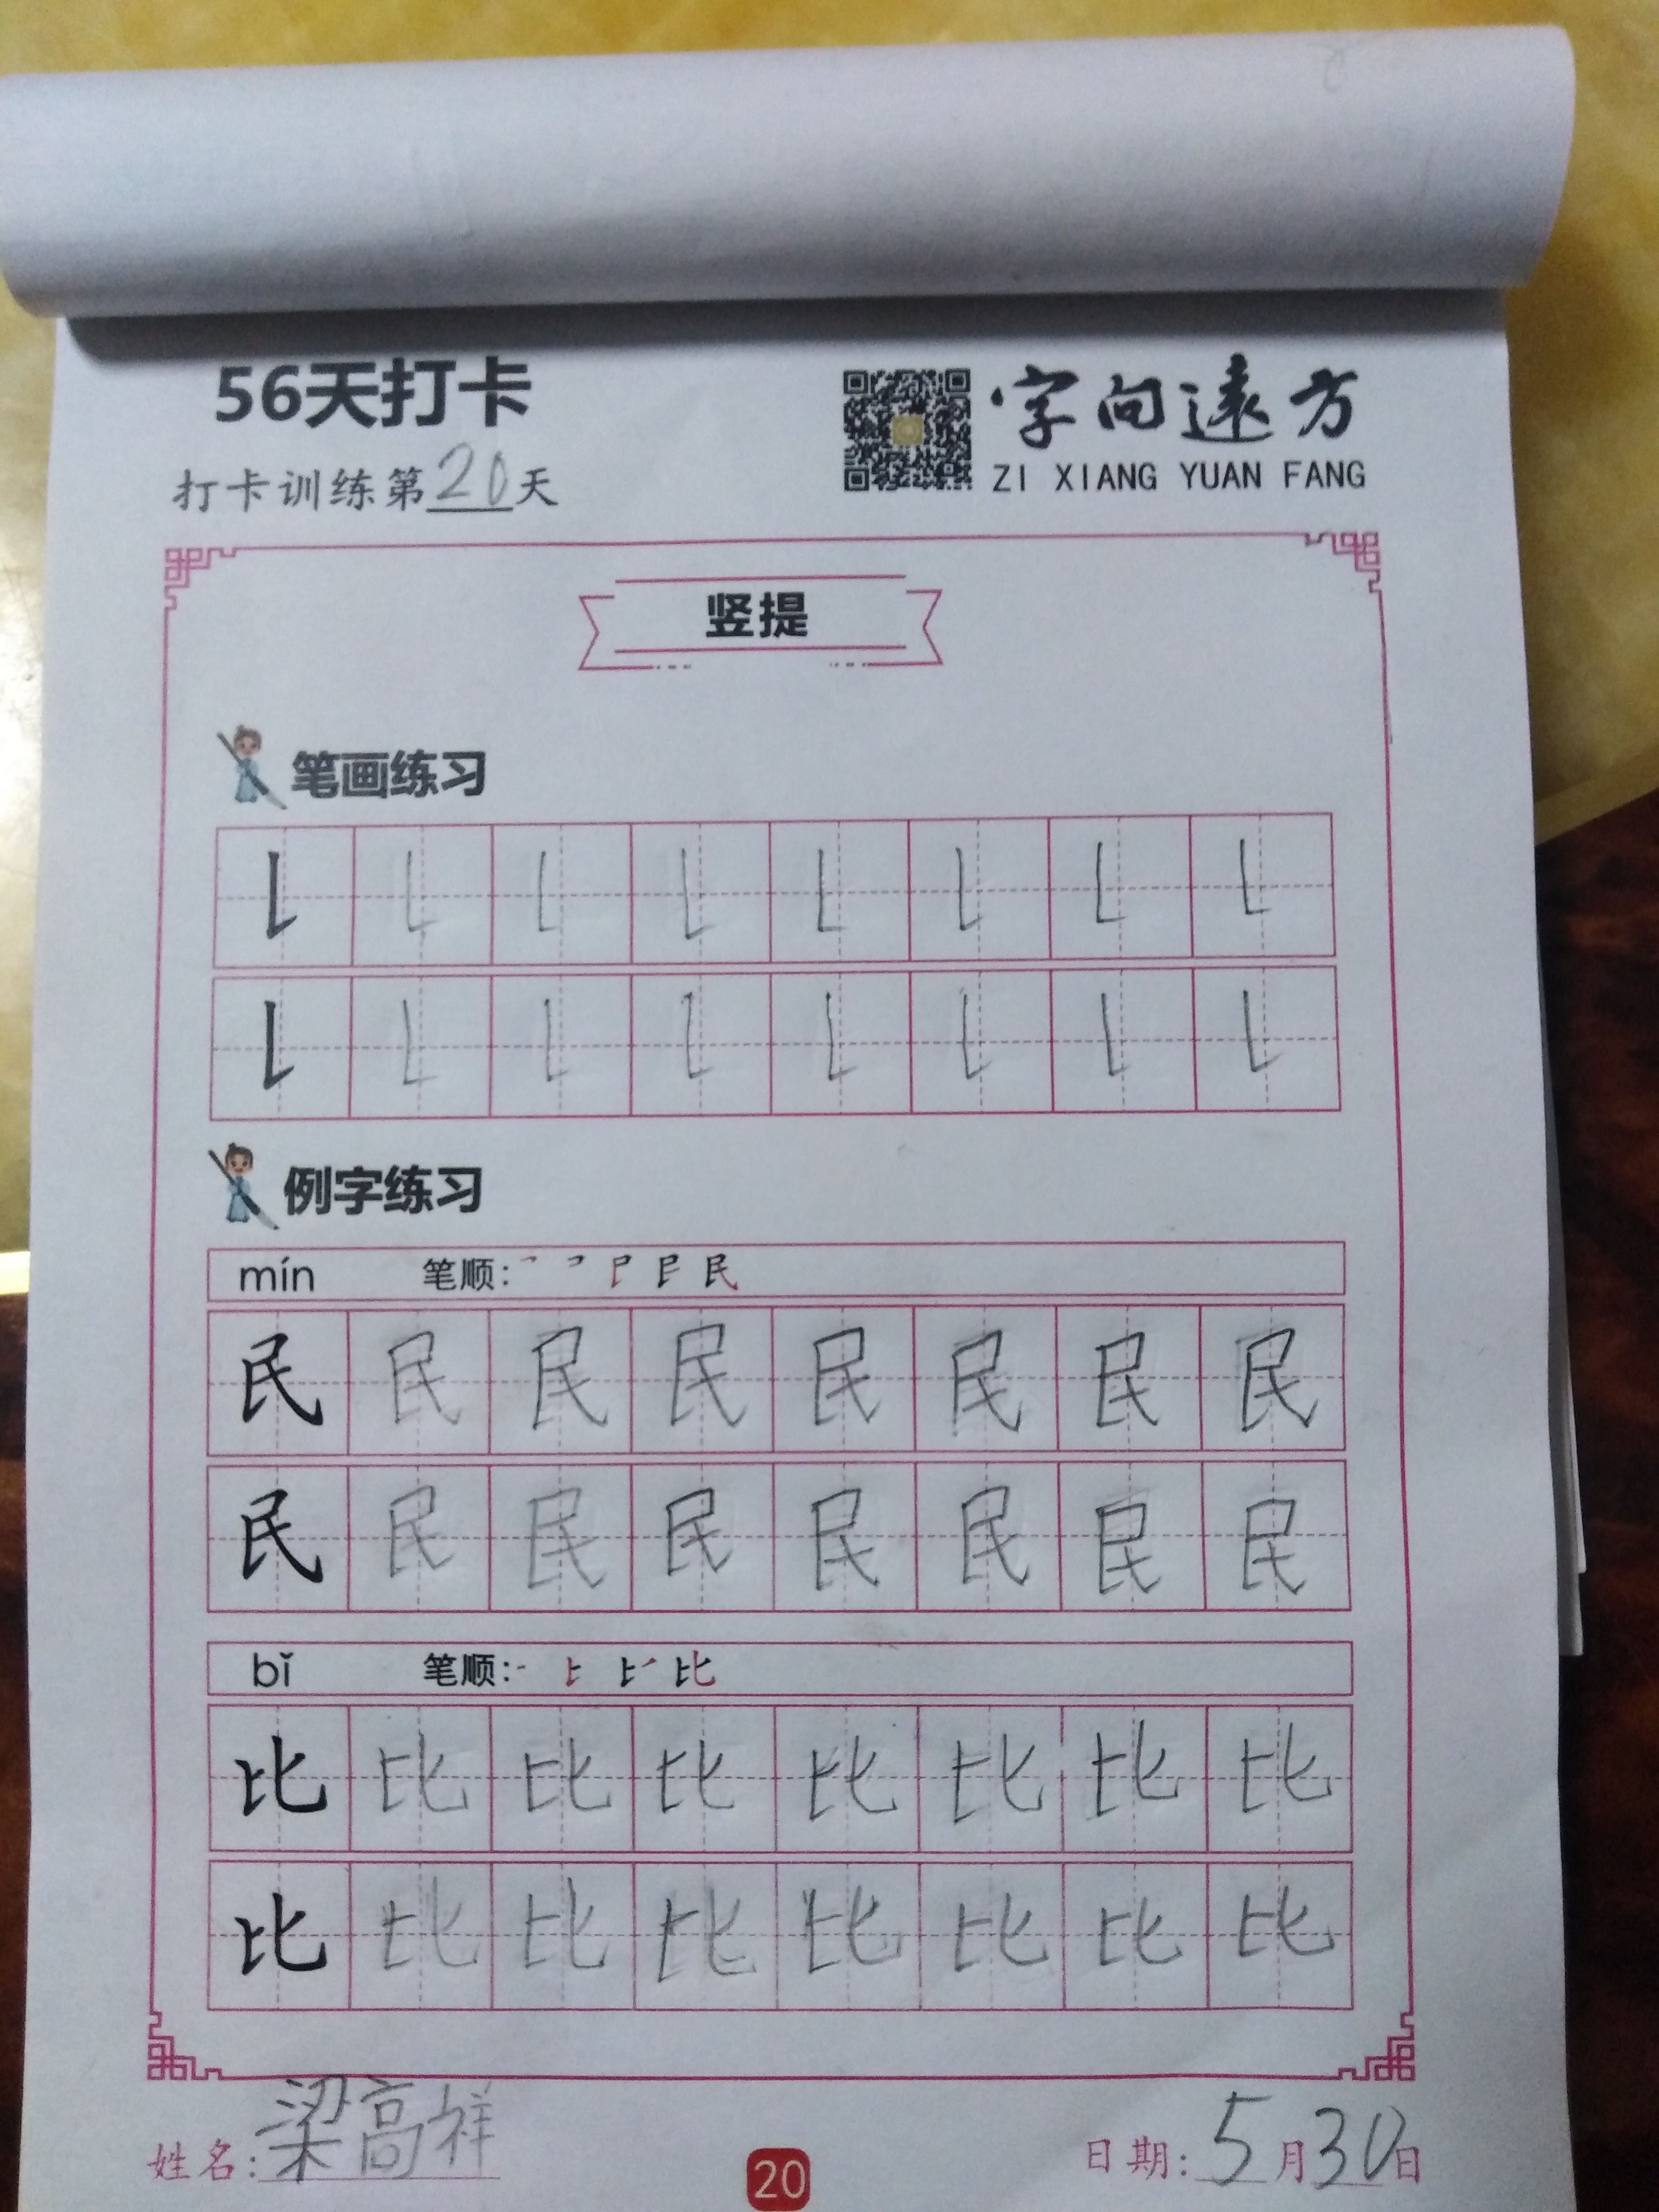 56天打卡
字向遠方
ZI XIANG YUAN FANG
打卡训练第20天
竖提
笔画练习
例字练习
mín 笔顺: 民
民民民民民民民民
民民民民民民民民
bǐ 笔顺: 比
比比比比比比比比
比比比比比比比比
姓名:梁高祥
20
日期:5月30日